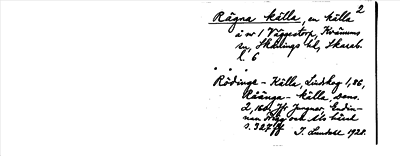 2
Rägna källa, en källa
i nr 1 Väggestorp, Kvänums
sn, Skånings hd, Skarab.
l. 6
Rödinge-Källa, Lindskog 1, 86,
källa, dens.
2, 160. Jfr Jungner, Gudin-
nan Frigg och Als härad
s. 327 ff J. Lundahl 1928.